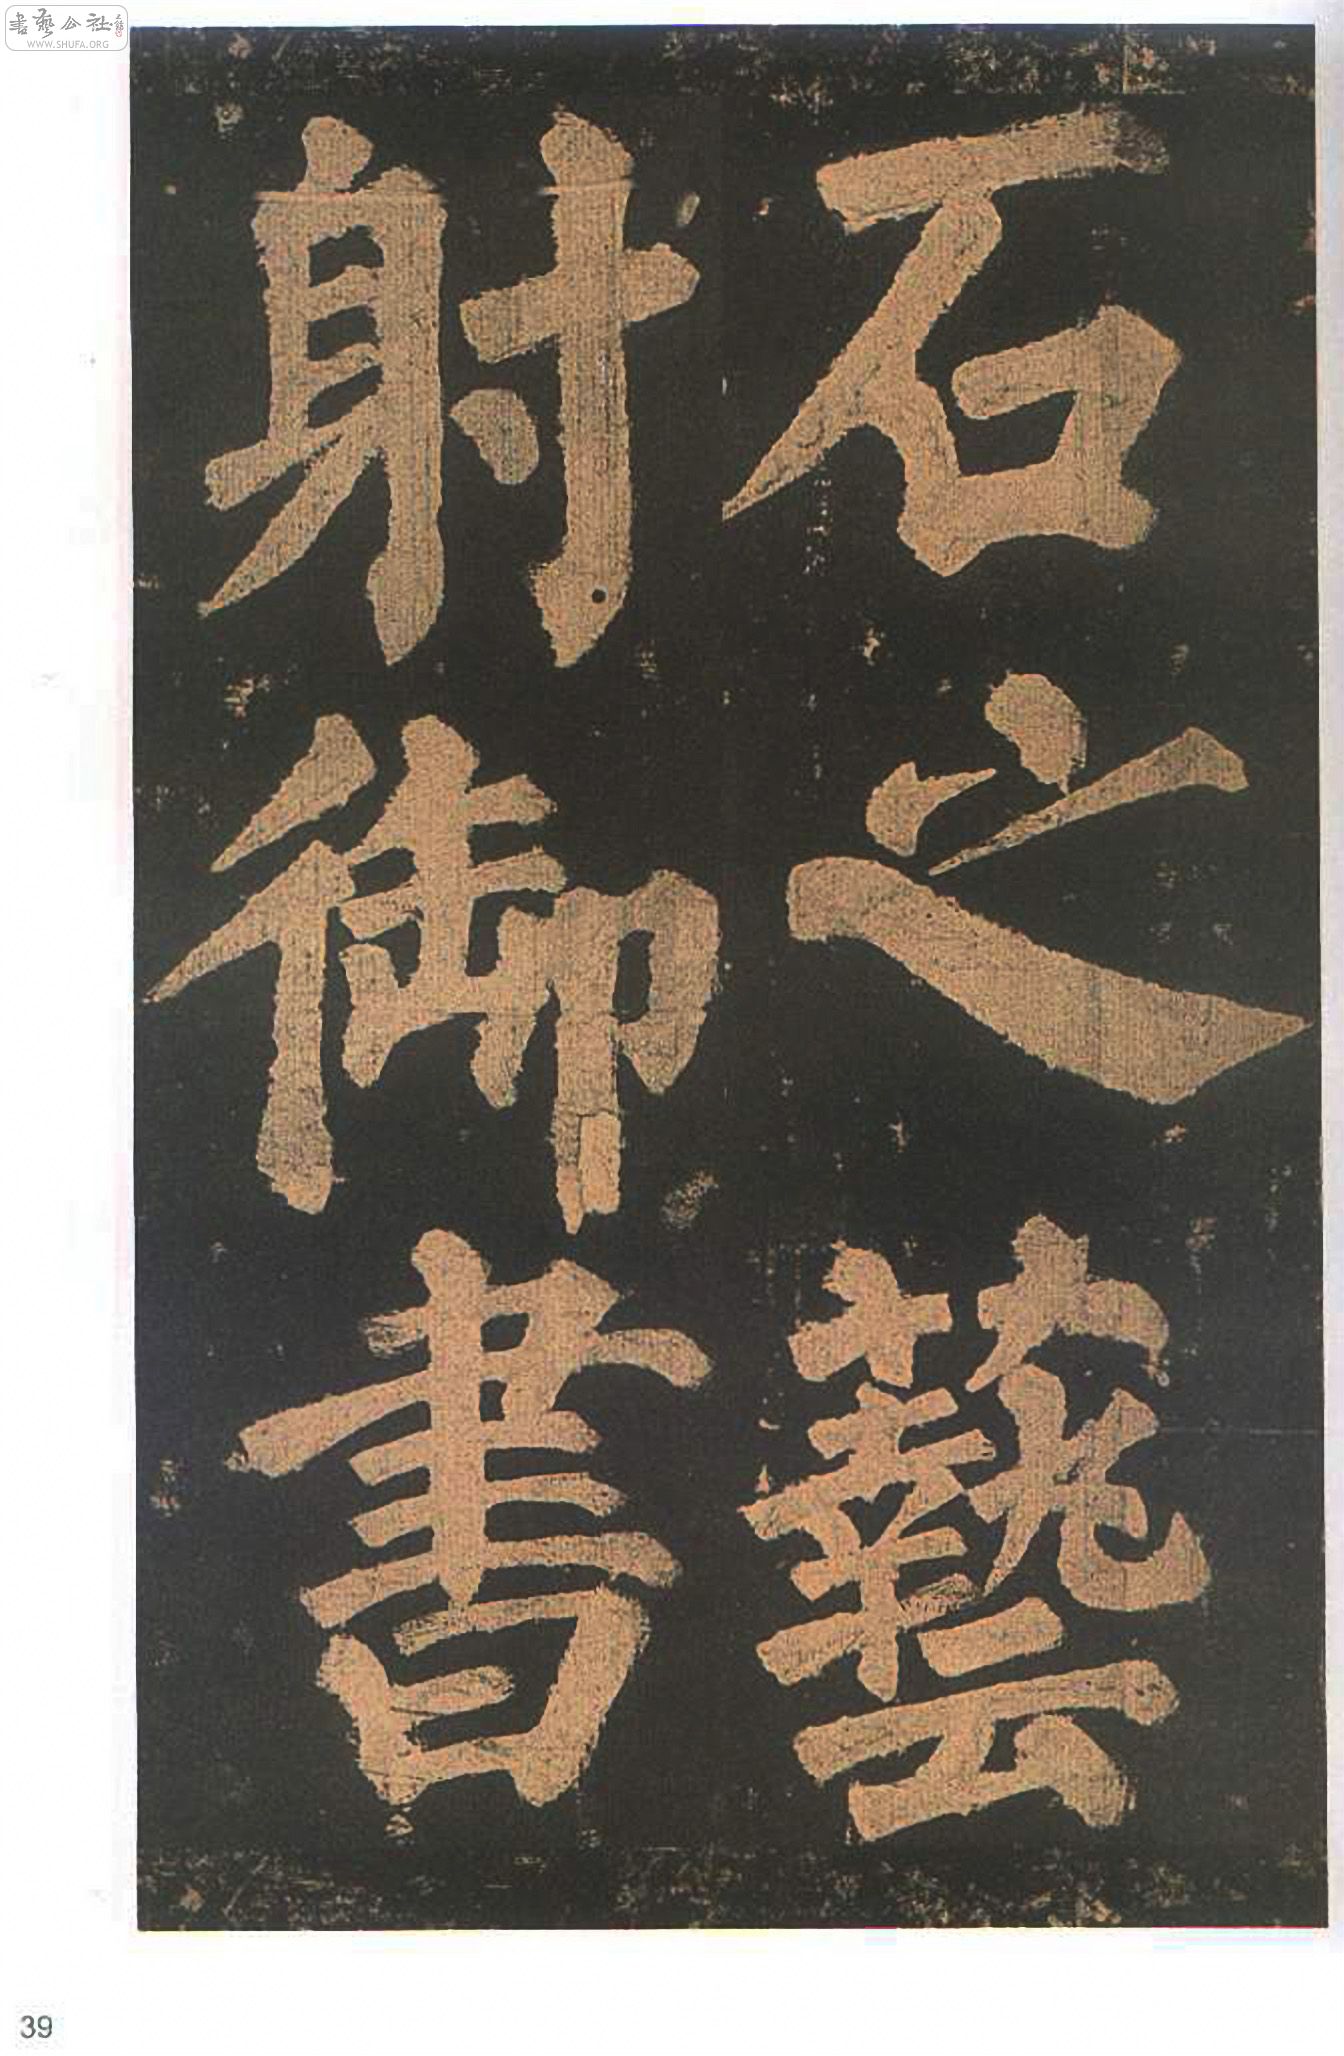 石之藝
射御書
書藝公社
WWW.SHUFA.ORG
39